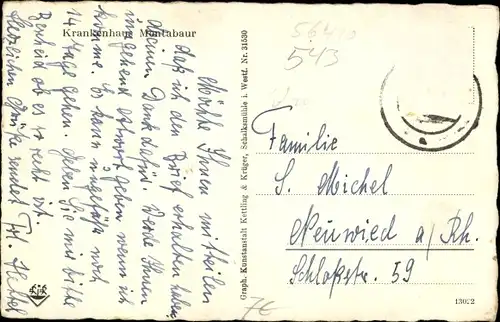 Krankenhaus Montabaur
Möchte Ihnen mitteilen
daß ich den Brief erhalten habe.
Meinen Dank dafür. Werde Ihnen
umgehend Antwort geben wenn ich
komme. Es kann ungefähr noch
14 Tage gehen. Geben Sie mir bitte
Bescheid ob es so recht ist.
Herzlichen Grüße sendet Frl.
Graph. Kunstanstalt Kettling & Krüger, Schalksmühle i. Westf. Nr. 31530
543
Familie
S. Michel
Neuwied a/Rh.
Schloßstr. 59
7€